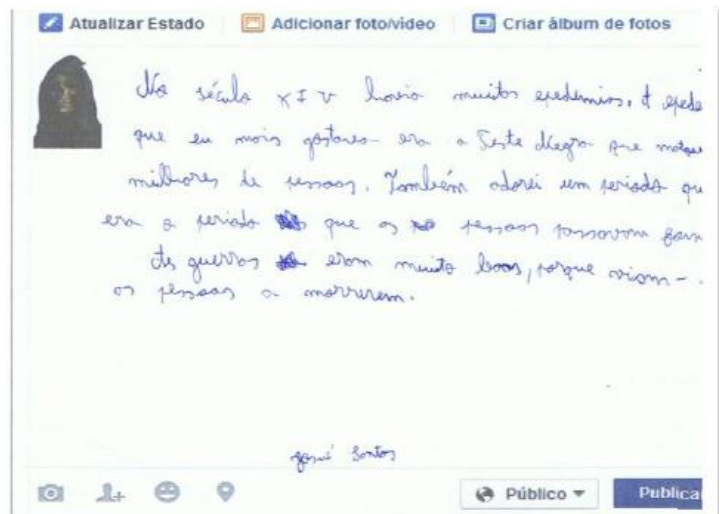 Atualizar Estado Adicionar foto/vídeo Criar álbum de fotos
No século XIV havia muitas epedemias. A epede
que eu mais gostava era a Peste Negra que matou
milhares de pessoas. Também adorei um período qu
era o período que as pessoas passavam fom
As guerras eram muito boas, porque viam-
as pessoas a morrerem.
Josué Santos
Público Publica